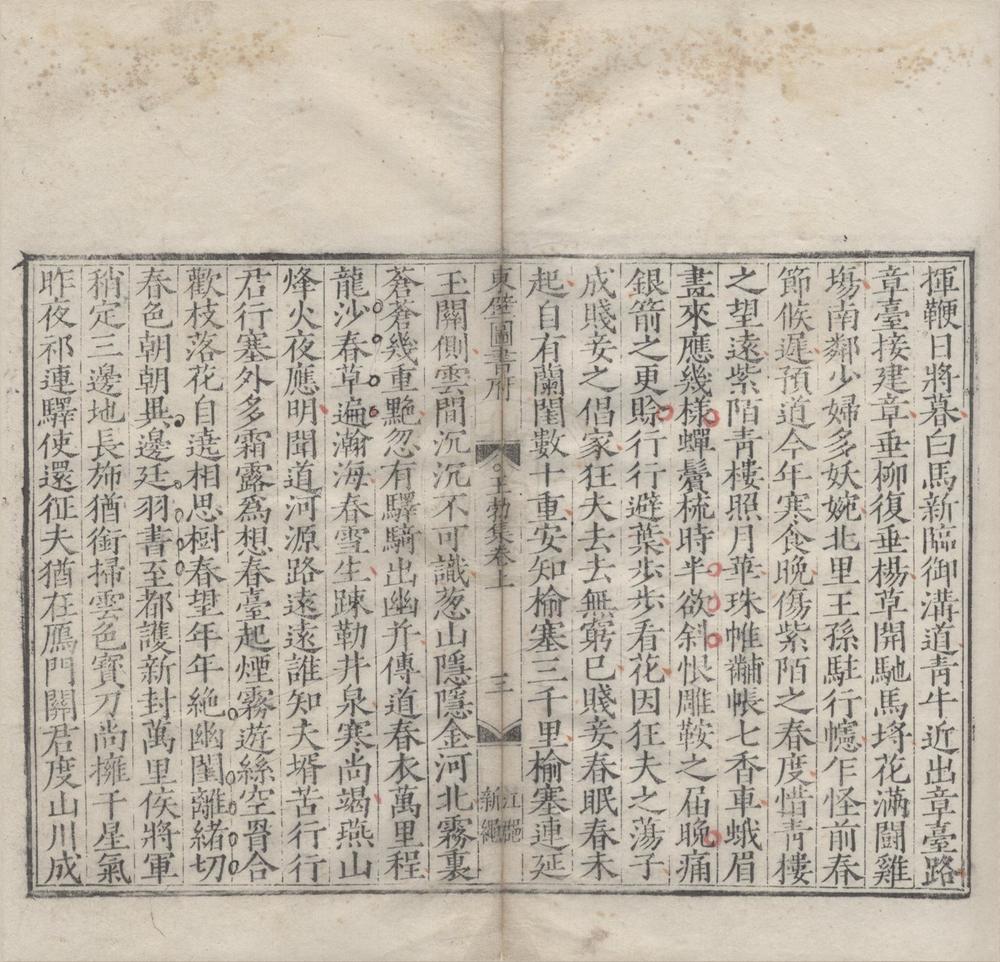 揮鞭日將暮白馬新臨御溝道青牛近出章臺路
章臺接建章垂柳復垂楊草開馳馬埒花滿闘雞
塲南鄰少婦多妖婉北里王孫駐行幰乍怪前春
節候遲預道今年寒食晚傷紫陌之春度惜青樓
之望遠紫陌青樓照月華珠帷黼帳七香車蛾眉
畫來應幾樣蟬鬢梳時半欲斜恨雕鞍之届晚痛
銀箭之更賒行行避葉步步看花因狂夫之蕩子
成賤妾之倡家狂夫去去無窮已賤妾春眠春未
起自有蘭閨數十重安知榆塞三千里榆塞連延
東壁圖書府
王勃集卷上
三
江
新
玉關側雲間沉沉不可識葱山隱隱金河北霧裏
蒼蒼幾重艶忽有驛騎出幽并傳道春衣萬里程
龍沙春草遍瀚海春雪生踈勒井泉寒尚竭燕山
烽火夜應明聞道河源路遠遠誰知夫壻苦行行
君行塞外多霜露爲想春臺起煙霧遊絲空罥合
歡枝落花自遶相思樹春望年年絶幽閨離緒切
春色朝朝異邊廷羽書至都護新封萬里侯將軍
稍定三邊地長斾猶銜掃雲色寳刀尚擁干星氣
昨夜祁連驛使還征夫猶在鴈門關君度山川成